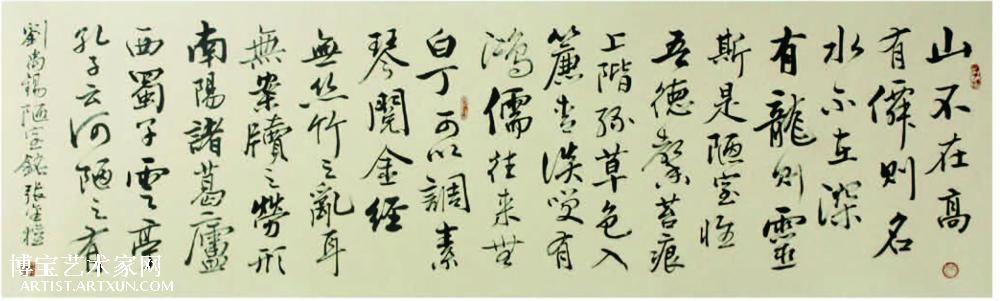 山不在高
有僊則名
水不在深
有龍則靈
斯是陋室惟
吾德馨苔痕
上階綠草色入
簾青談笑有
鴻儒往來無
白丁可以調素
琴閱金經
無絲竹之亂耳
無案牘之勞形
南陽諸葛廬
西蜀子雲亭
孔子云何陋之有
劉禹錫陋室銘 張
博宝艺术家网
ARTIST.ARTXUN.COM